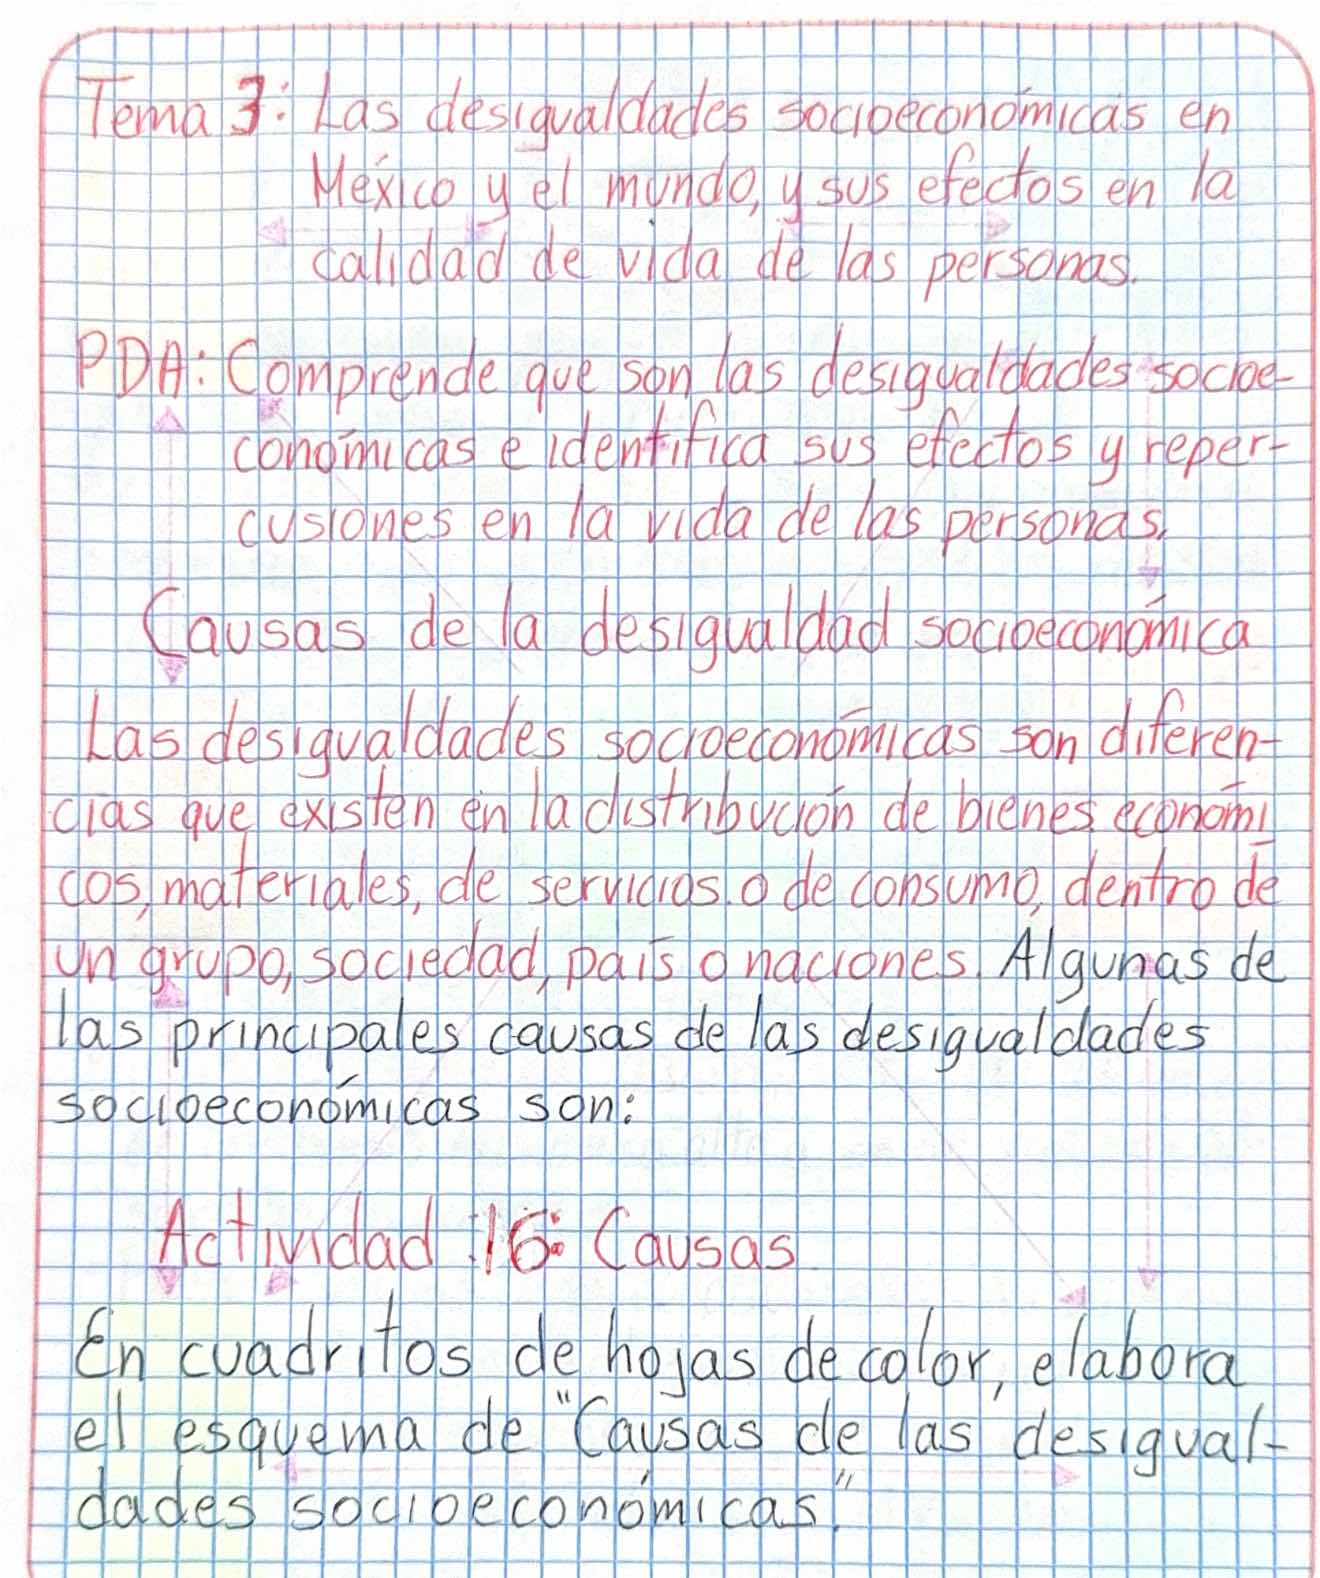 Tema 3: Las desigualdades socioeconómicas en
México y el mundo, y sus efectos en la
calidad de vida de las personas.
PDA: Comprende que son las desigualdades socioe-
conómicas e identifica sus efectos y reper-
cusiones en la vida de las personas.
Causas de la desigualdad socioeconómica
Las desigualdades socioeconómicas son diferen-
cias que existen en la distribución de bienes económi
cos, materiales, de servicios o de consumo, dentro de
un grupo, sociedad, país o naciones. Algunas de
las principales causas de las desigualdades
socioeconómicas son:
Actividad 16: Causas
En cuadritos de hojas de color, elabora
el esquema de "Causas de las desigual-
dades socioeconómicas".